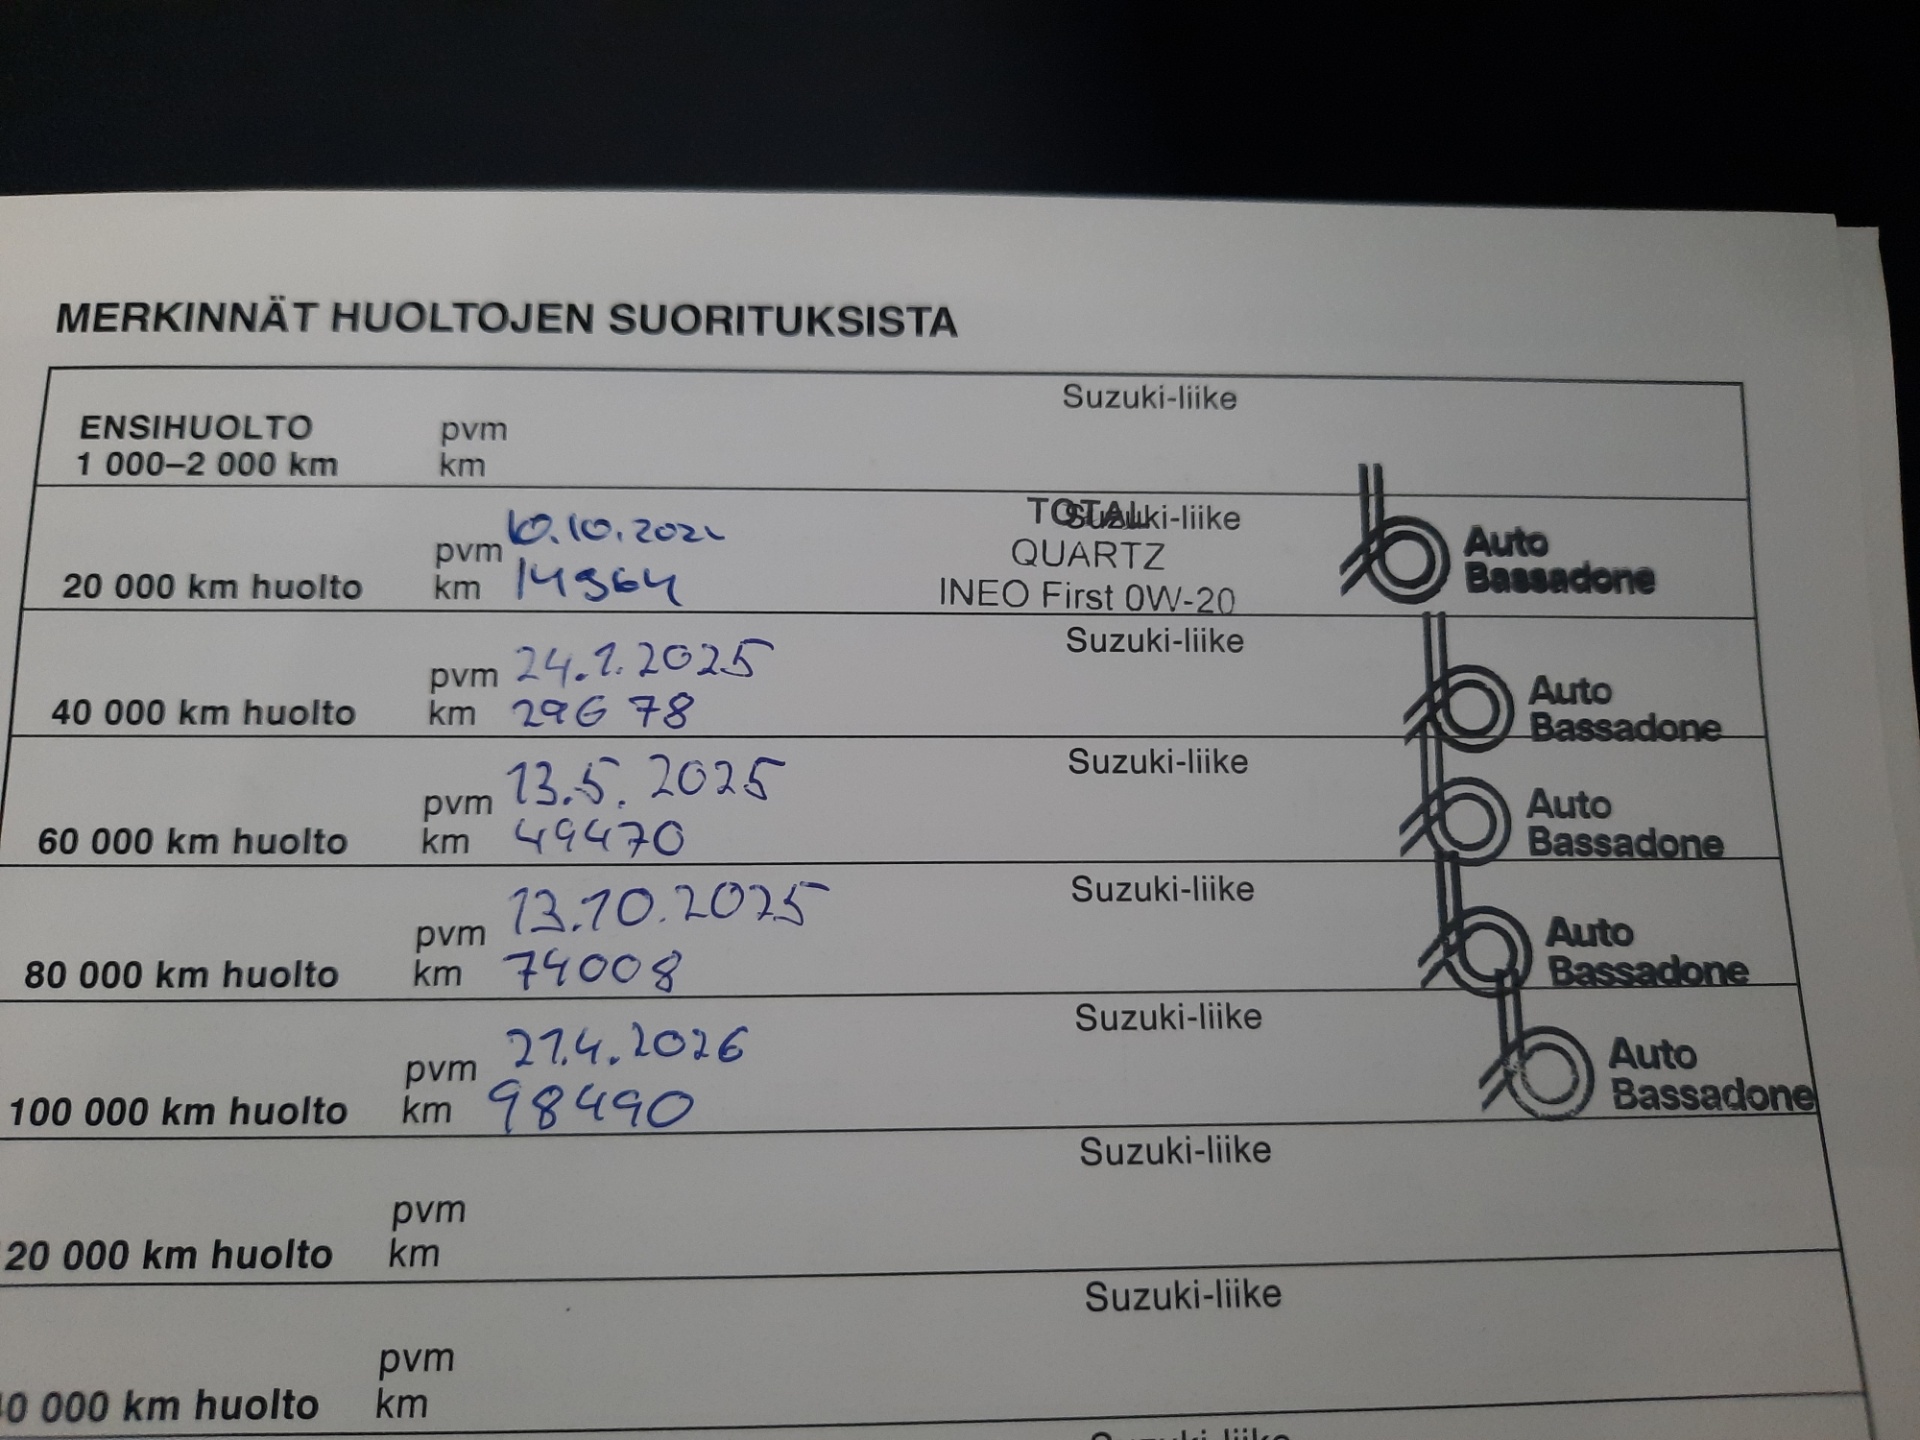 MERKINNÄT HUOLTOJEN SUORITUKSISTA
Suzuki-liike
ENSIHUOLTO pvm
1 000–2 000 km km
TOTAL Suzuki-liike
pvm 10.10.202
QUARTZ
Auto
20 000 km huolto km 14964
INEO First 0W-20
Bassadone
Suzuki-liike
pvm 24.1.2025
Auto
40 000 km huolto km 29678
Bassadone
Suzuki-liike
pvm 13.5.2025
Auto
60 000 km huolto km 49470
Bassadone
Suzuki-liike
pvm 13.10.2025
Auto
80 000 km huolto km 74008
Bassadone
Suzuki-liike
pvm 21.4.2026
Auto
100 000 km huolto km 98490
Bassadone
Suzuki-liike
pvm
20 000 km huolto km
Suzuki-liike
pvm
0 000 km huolto km
Suzuki-liike